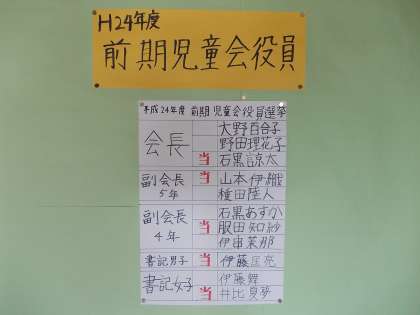 H24年度
前期児童会役員
平成24年度 前期児童会役員選挙
会長
大野百合子
野田理花子
当 石黒諒太
副会長
5年
当 山本伊織
植田陸人
副会長
4年
石黒あすか
当 服田知紗
伊串茉那
書記男子 当 伊藤匡亮
書記女子
伊藤舞
当 井比夏夢